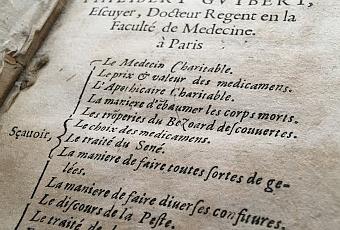 PHILIBERT GVIBERT,
Escuyer, Docteur Regent en la
Faculté de Medecine.
à Paris
Le Medecin Charitable.
Le prix & valeur des medicamens.
L'Apothicaire Charitable.
La maniere d'ébaumer les corps morts.
Les trõperies du Bezoard descouvertes.
Sçauoir,
Le choix des medicamens.
Le traité du Sené.
La maniere de faire toutes sortes de ge-
lées.
La maniere de faire diverses confitures.
Le discours de la Peste.
Le traité de la